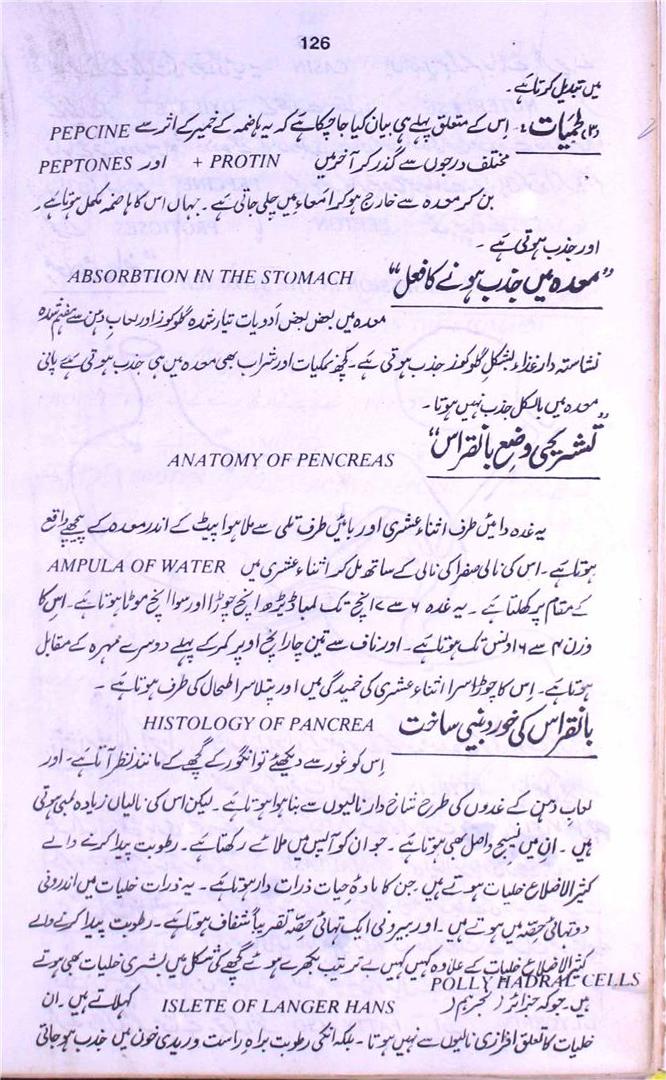 126
میں تبدیل کرتا ہے۔
(۳) لحمیات :۔ اس کے متعلق پہلے ہی بیان کیا جا چکا ہے کہ یہ ہاضمہ کے خمیر کے اثر سے PEPCINE
مختلف درجوں سے گذر کر آخر میں PROTIN + اور PEPTONES
بن کر معدہ سے خارج ہو کر امعاء میں چلی جاتی ہے۔ جہاں اس کا ہاضمہ مکمل ہوتا ہے۔
اور جذب ہوتی ہے۔
"معدہ میں جذب ہونے کا فعل" ABSORBTION IN THE STOMACH
معدہ میں بعض بعض ادویات تیار شدہ گلوکوز اور لعاب دہن سے ہضم شدہ
نشاستہ دار غذاء بشکل گلوکوز جذب ہوتی ہے۔ کچھ نمکیات اور شراب بھی معدہ میں ہی جذب ہوتی ہے پانی
معدہ میں بالکل جذب نہیں ہوتا۔
"تشریحی وضع بانقراس" ANATOMY OF PENCREAS
یہ غدہ دائیں طرف اثناء عشری اور بائیں طرف تلی سے ملا ہوا پیٹ کے اندر معدہ کے پیچھے واقع
ہوتا ہے۔ اس کی نالی صفرا کی نالی کے ساتھ مل کر اثناء عشری میں AMPULA OF WATER
کے مقام پر کھلتا ہے۔ یہ غدہ ۶ سے ۷ انچ تک لمبا ڈیڑھ انچ چوڑا اور سوا انچ موٹا ہوتا ہے۔ اس کا
وزن ۴ سے ۶ اونس تک ہوتا ہے۔ اور ناف سے تین چار انچ اوپر کمر کے پہلے دوسرے مہرہ کے مقابل
ہوتا ہے۔ اس کا چوڑا سرا اثناء عشری کی خمیدگی میں اور پتلا سرا طحال کی طرف ہوتا ہے۔
بانقراس کی خوردبینی ساخت HISTOLOGY OF PANCREA
اس کو غور سے دیکھئے تو انگور کے گچھے کے مانند نظر آتا ہے، اور
لعاب دہن کے غدوں کی طرح شاخ دار نالیوں سے بنا ہوا ہوتا ہے۔ لیکن اس کی نالیاں زیادہ لمبی ہوتی
ہیں۔ ان میں نسیج واصل بھی ہوتا ہے۔ جو ان کو آپس میں ملائے رکھتا ہے۔ رطوبت پیدا کرنے والے
کثیر الاضلاع خلیات ہوتے ہیں۔ جن کا مادۂ حیات ذرات دار ہوتا ہے۔ یہ ذرات خلیات میں اندرونی
دو تہائی حصہ میں ہوتے ہیں۔ اور بیرونی ایک تہائی حصہ تقریباً شفاف ہوتا ہے۔ رطوبت پیدا کرنے والے
کثیر الاضلاع خلیات کے علاوہ کہیں کہیں بے ترتیب بکھرے ہوئے گچھے کی شکل میں بشری خلیات بھی ہوتے
POLLY HADRAL CELLS
ہیں۔ جو کہ جزائر ( لجرہم ( ISLETE OF LANGER HANS کہلاتے ہیں۔ ان
خلیات کا تعلق افرازی نالیوں سے نہیں ہوتا۔ بلکہ انکی رطوبت براہ راست وریدی خون میں جذب ہو جاتی